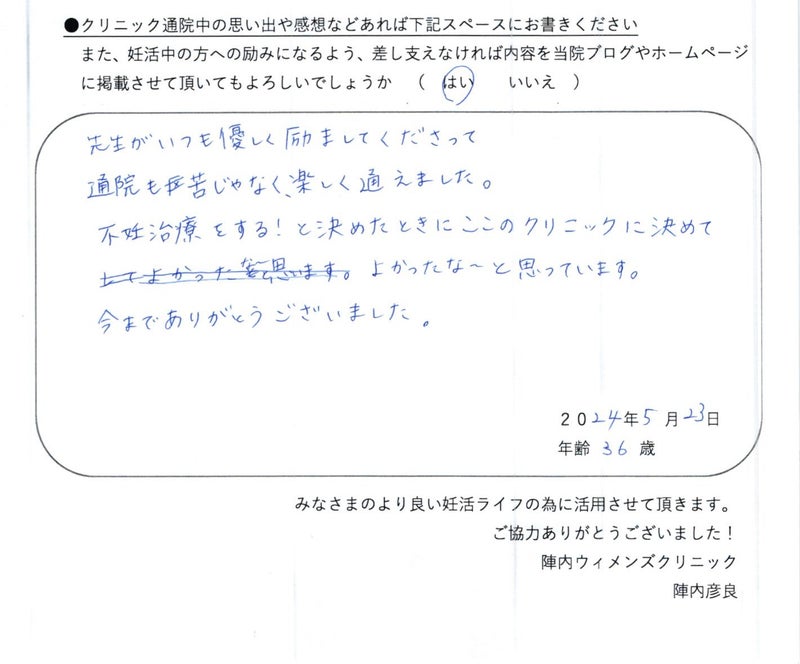 ●クリニック通院中の思い出や感想などあれば下記スペースにお書きください
また、妊活中の方への励みになるよう、差し支えなければ内容を当院ブログやホームページ
に掲載させて頂いてもよろしいでしょうか （ はい いいえ ）
先生がいつも優しく励ましてくださって
通院も苦じゃなく、楽しく通えました。
不妊治療をする！と決めたときにここのクリニックに決めて
よかったな〜と思っています。
今までありがとうございました。
2024年5月23日
年齢 36 歳
みなさまのより良い妊活ライフの為に活用させて頂きます。
ご協力ありがとうございました！
陣内ウィメンズクリニック
陣内彦良